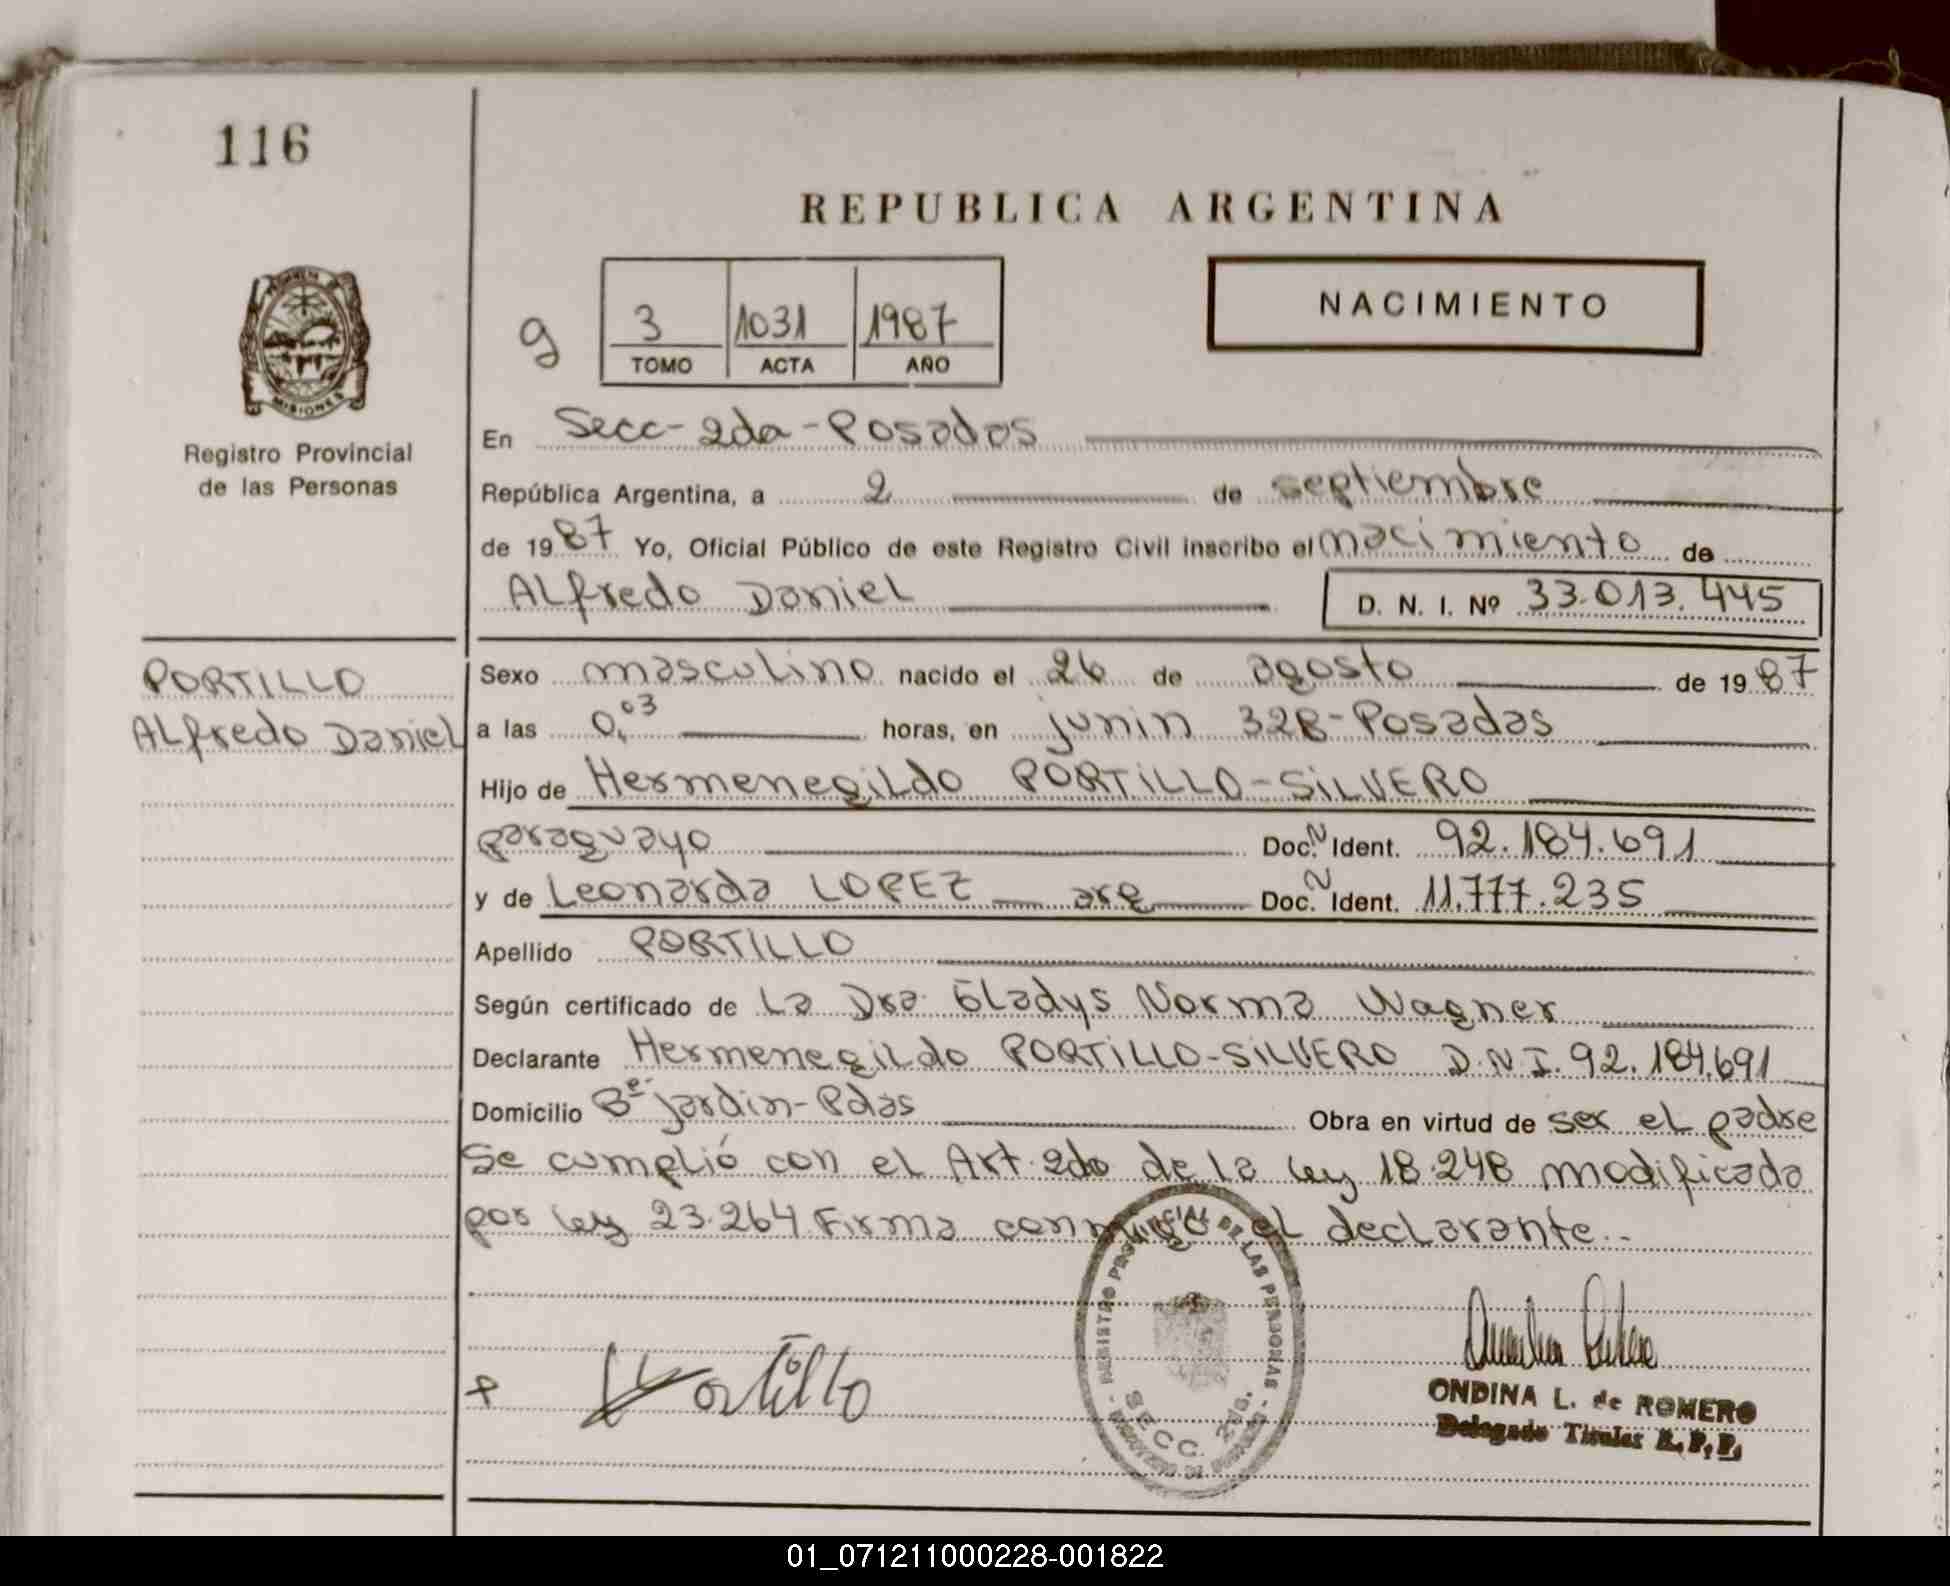 116
REPUBLICA ARGENTINA
MISIONES
Registro Provincial
de las Personas
g
3 1031 1987
TOMO ACTA AÑO
NACIMIENTO
En Secc-2da-Posadas
República Argentina, a 2 de septiembre
de 1987 Yo, Oficial Público de este Registro Civil inscribo el nacimiento de
Alfredo Daniel D. N. I. Nº 33.013.445
PORTILLO
Alfredo Daniel
Sexo masculino nacido el 26 de agosto de 1987
a las 0,03 horas, en junin 328-Posadas
Hijo de Hermenegildo PORTILLO-SILVERO
paraguayo Doc. N Ident. 92.184.691
y de Leonarda LOPEZ arg Doc. N Ident. 11.777.235
Apellido PORTILLO
Según certificado de La Dra. Gladys Norma Wagner
Declarante Hermenegildo PORTILLO-SILVERO D.N.I. 92.184.691
Domicilio Bº jardin-Pdas Obra en virtud de ser el padre
Se cumplió con el Art. 2do de la ley 18.248 modificada
por ley 23.264. Firma conmigo el declarante..
REGISTRO PROVINCIAL DE LAS PERSONAS
SECC. 2da.
Portillo
ONDINA L. de ROMERO
Delegado Titular R.P.P.
01_071211000228-001822